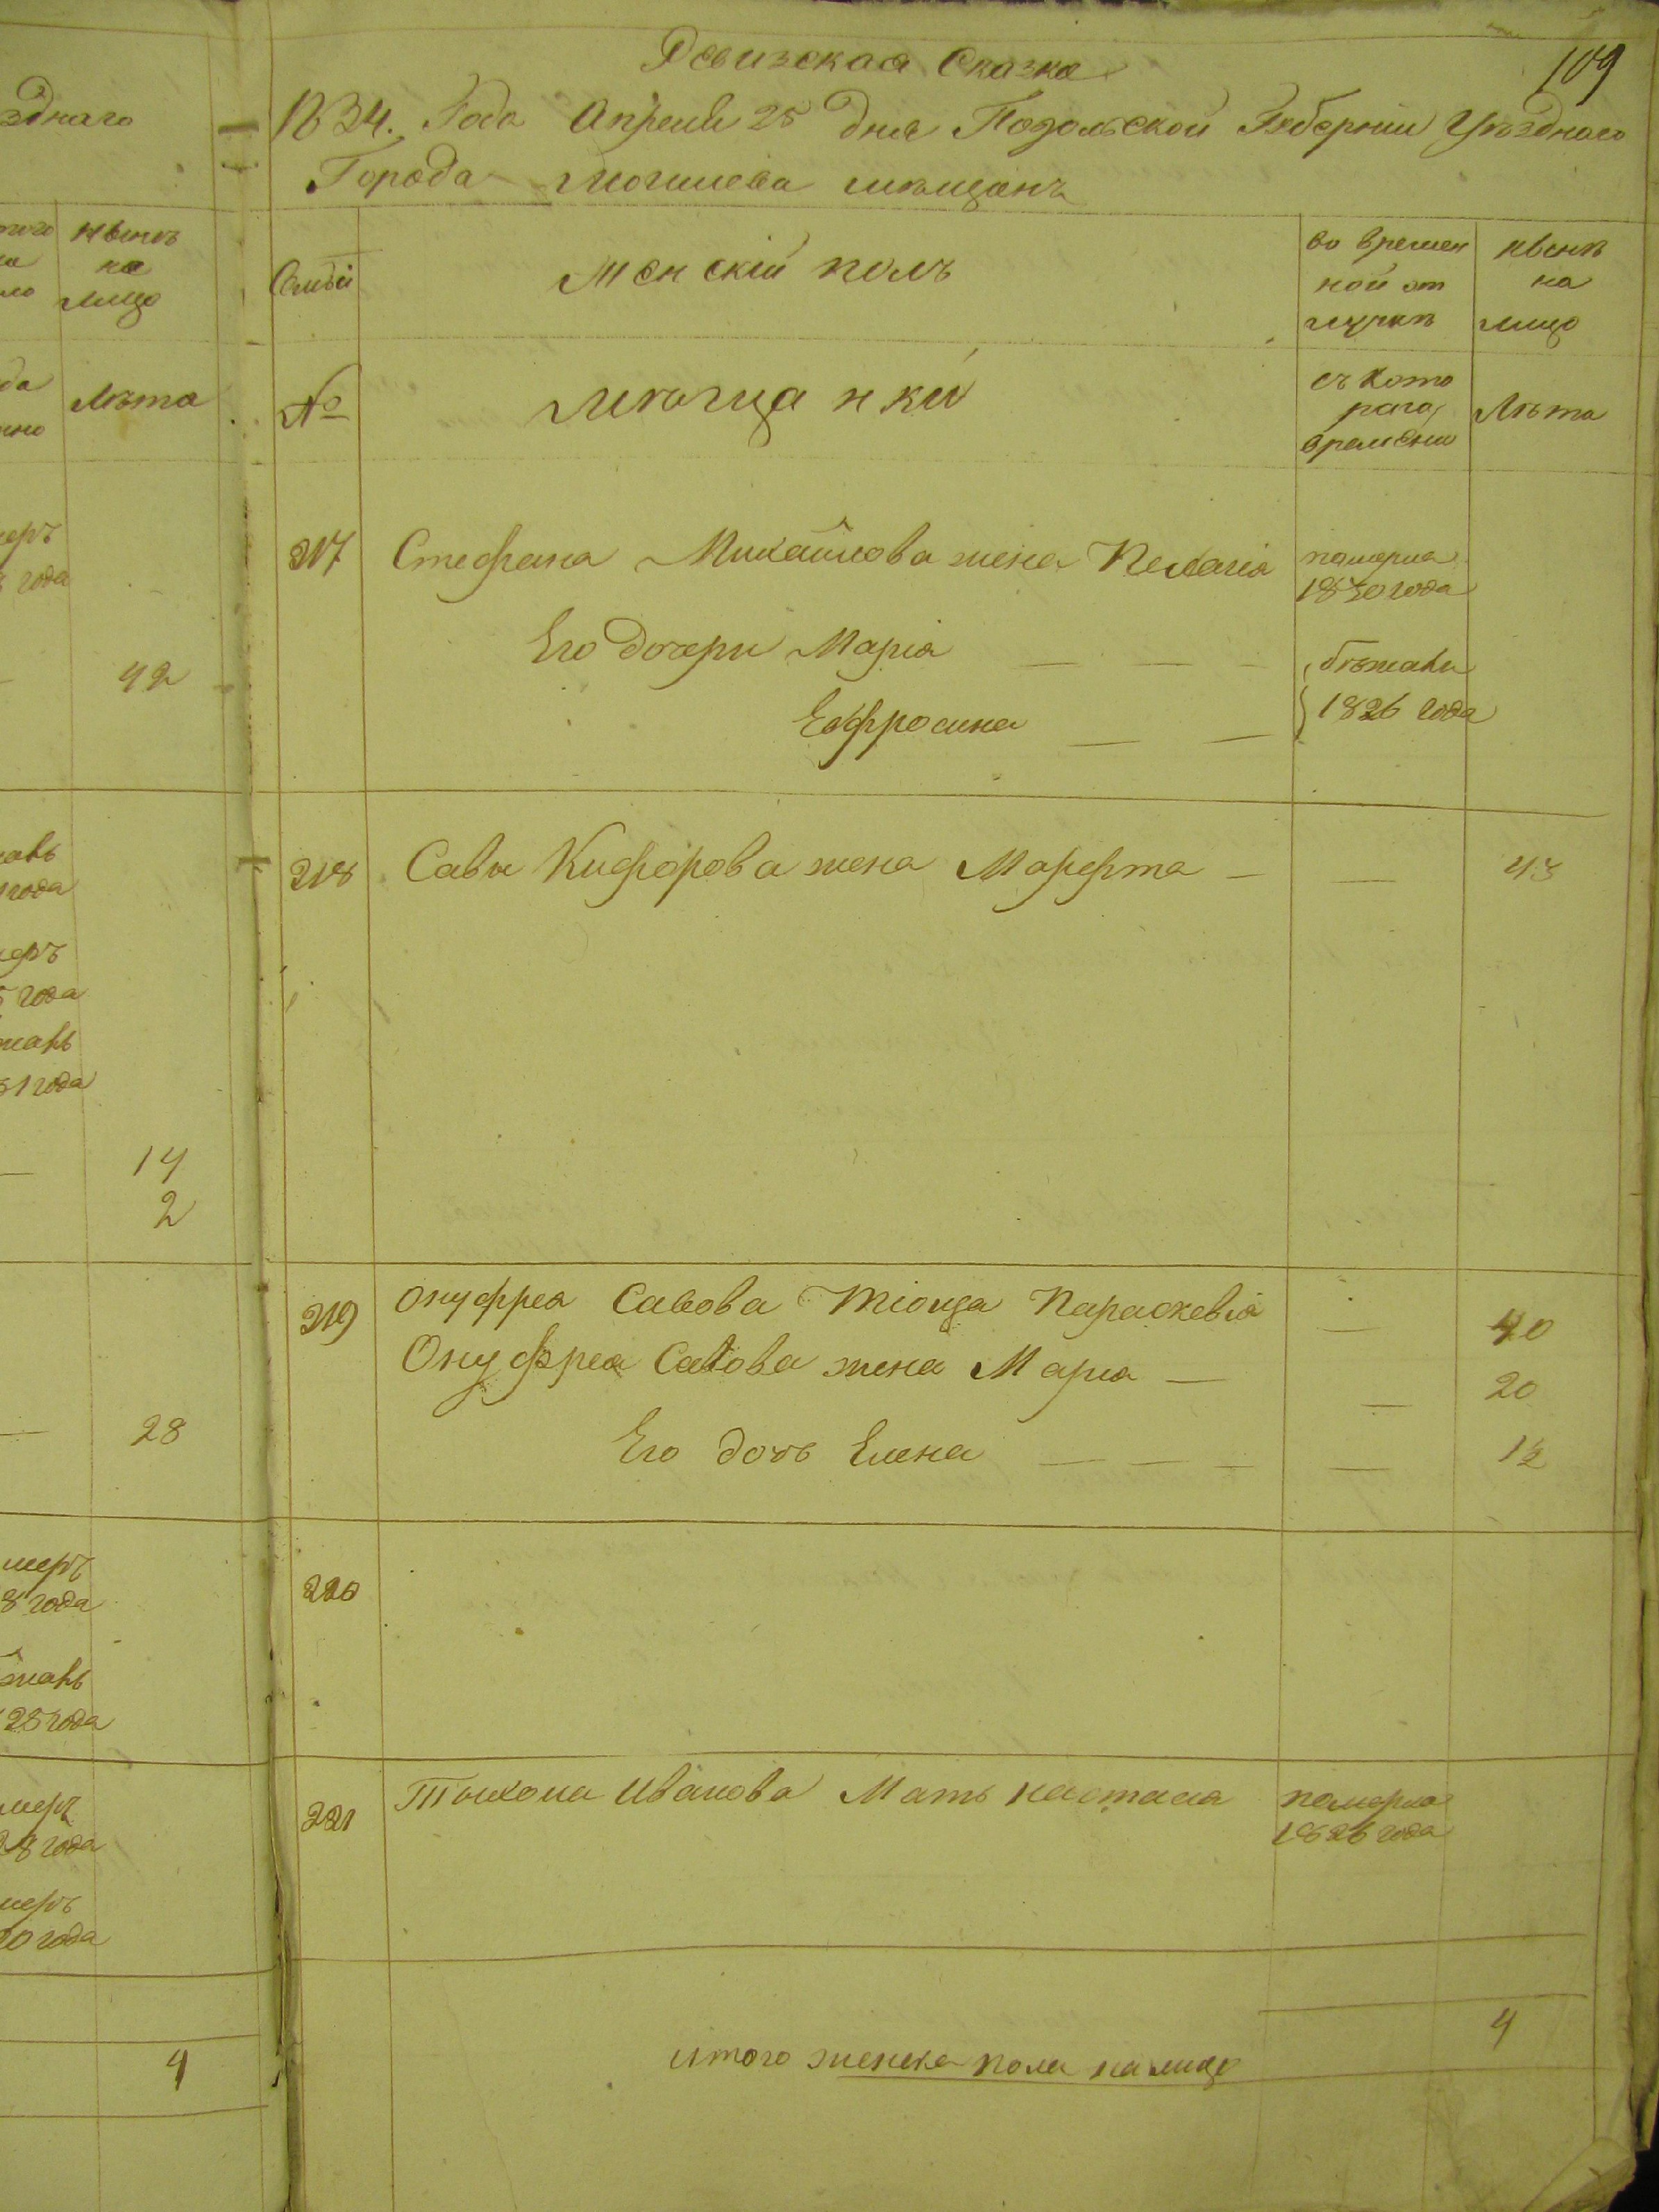 Ревизская Сказка
109
1834. Года Апреля 25 дня Подольской Губернии Уѣзднаго
Города Могилева мѣщанъ
Семьи
Женскій полъ
во времен
ной от
лучкѣ
нынѣ
на
лицо
№
мѣщанки
съ кото
раго
времени
Лѣта
317
Стефана Михайлова жена Пелагія
померла
1830 года
Его дочери Марія — — —
Ефросина — —
бѣжали
1826 года
318
Савы Кифорова жена Марфта — —
43
319
Онуфрея Савова Тіоща Параскевія —
40
Онуфрея Савова жена Марія — —
20
Его дочь Елена — — — —
12
320
321
Тыхона Иванова Мать Настасia
померла
1826 года
итого женска пола налицо
4
зднаго
нынѣ
на
лицо
Лѣта
года
42
года
года
года
14
2
28
8 года
28 года
28 года
года
4